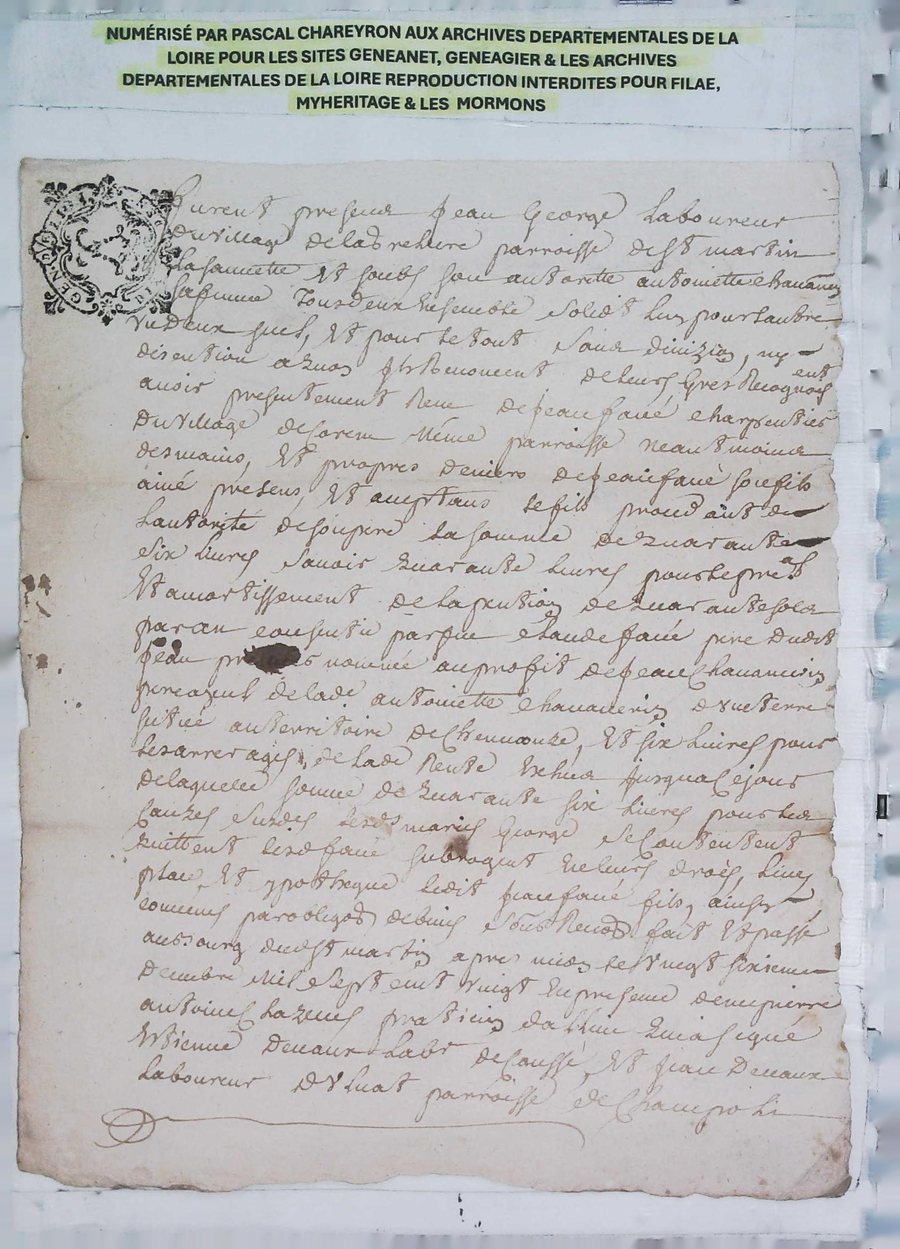 NUMÉRISÉ PAR PASCAL CHAREYRON AUX ARCHIVES DEPARTEMENTALES DE LA
LOIRE POUR LES SITES GENEANET, GENEAGIER & LES ARCHIVES
DEPARTEMENTALES DE LA LOIRE REPRODUCTION INTERDITES POUR FILAE,
MYHERITAGE & LES MORMONS
furent presens Jean George Laboureur
du village de parroisse de st martin
La sauveté et soubs son autorité antoinette chavanerin
sa femme tous deux ensemble solidt lun pour lautre
un deux seul, et pour le tout sans division, ny
disention a quoy ils Renoncent de leurs grés Recognoissent
avoir presentement Receu de jean faué charpentier
du village de même parroisse neantmoins
des mains, et propres deniers de jean faué son fils
ainé present, et aceptant le fils procedant de
Lautorité de son pere la somme de quarante
six livres savoir quarante livres pour le prix
et amortissement de la pention de quarante sols
par an consentie par feu claude faué pere dudit
jean nommée au profit de jean Chavanerin
pere ayeul de lade antoinette chavanerin dune terre
située au territoire de et six livres pour
les arrerages de lade Rente echus jusqua ce jour
de laquelle somme de quarante six livres pour les
causes susdes lesds mariés George se Contentent
quittent lesd faué subrogent en leurs droits, lieu,
place, et ypotheque ledit jean faué fils, ainsy
convenu par obligaon de biens sous Renon fait et passé
au bourg dudt st martin apres midy le vingt sixieme
decembre mil sept cent vingt en presence de me pierre
antoine praticien qui a signé
ettienne Devaux Labr de et jean Devaux
Laboureur parroisse de Champoli